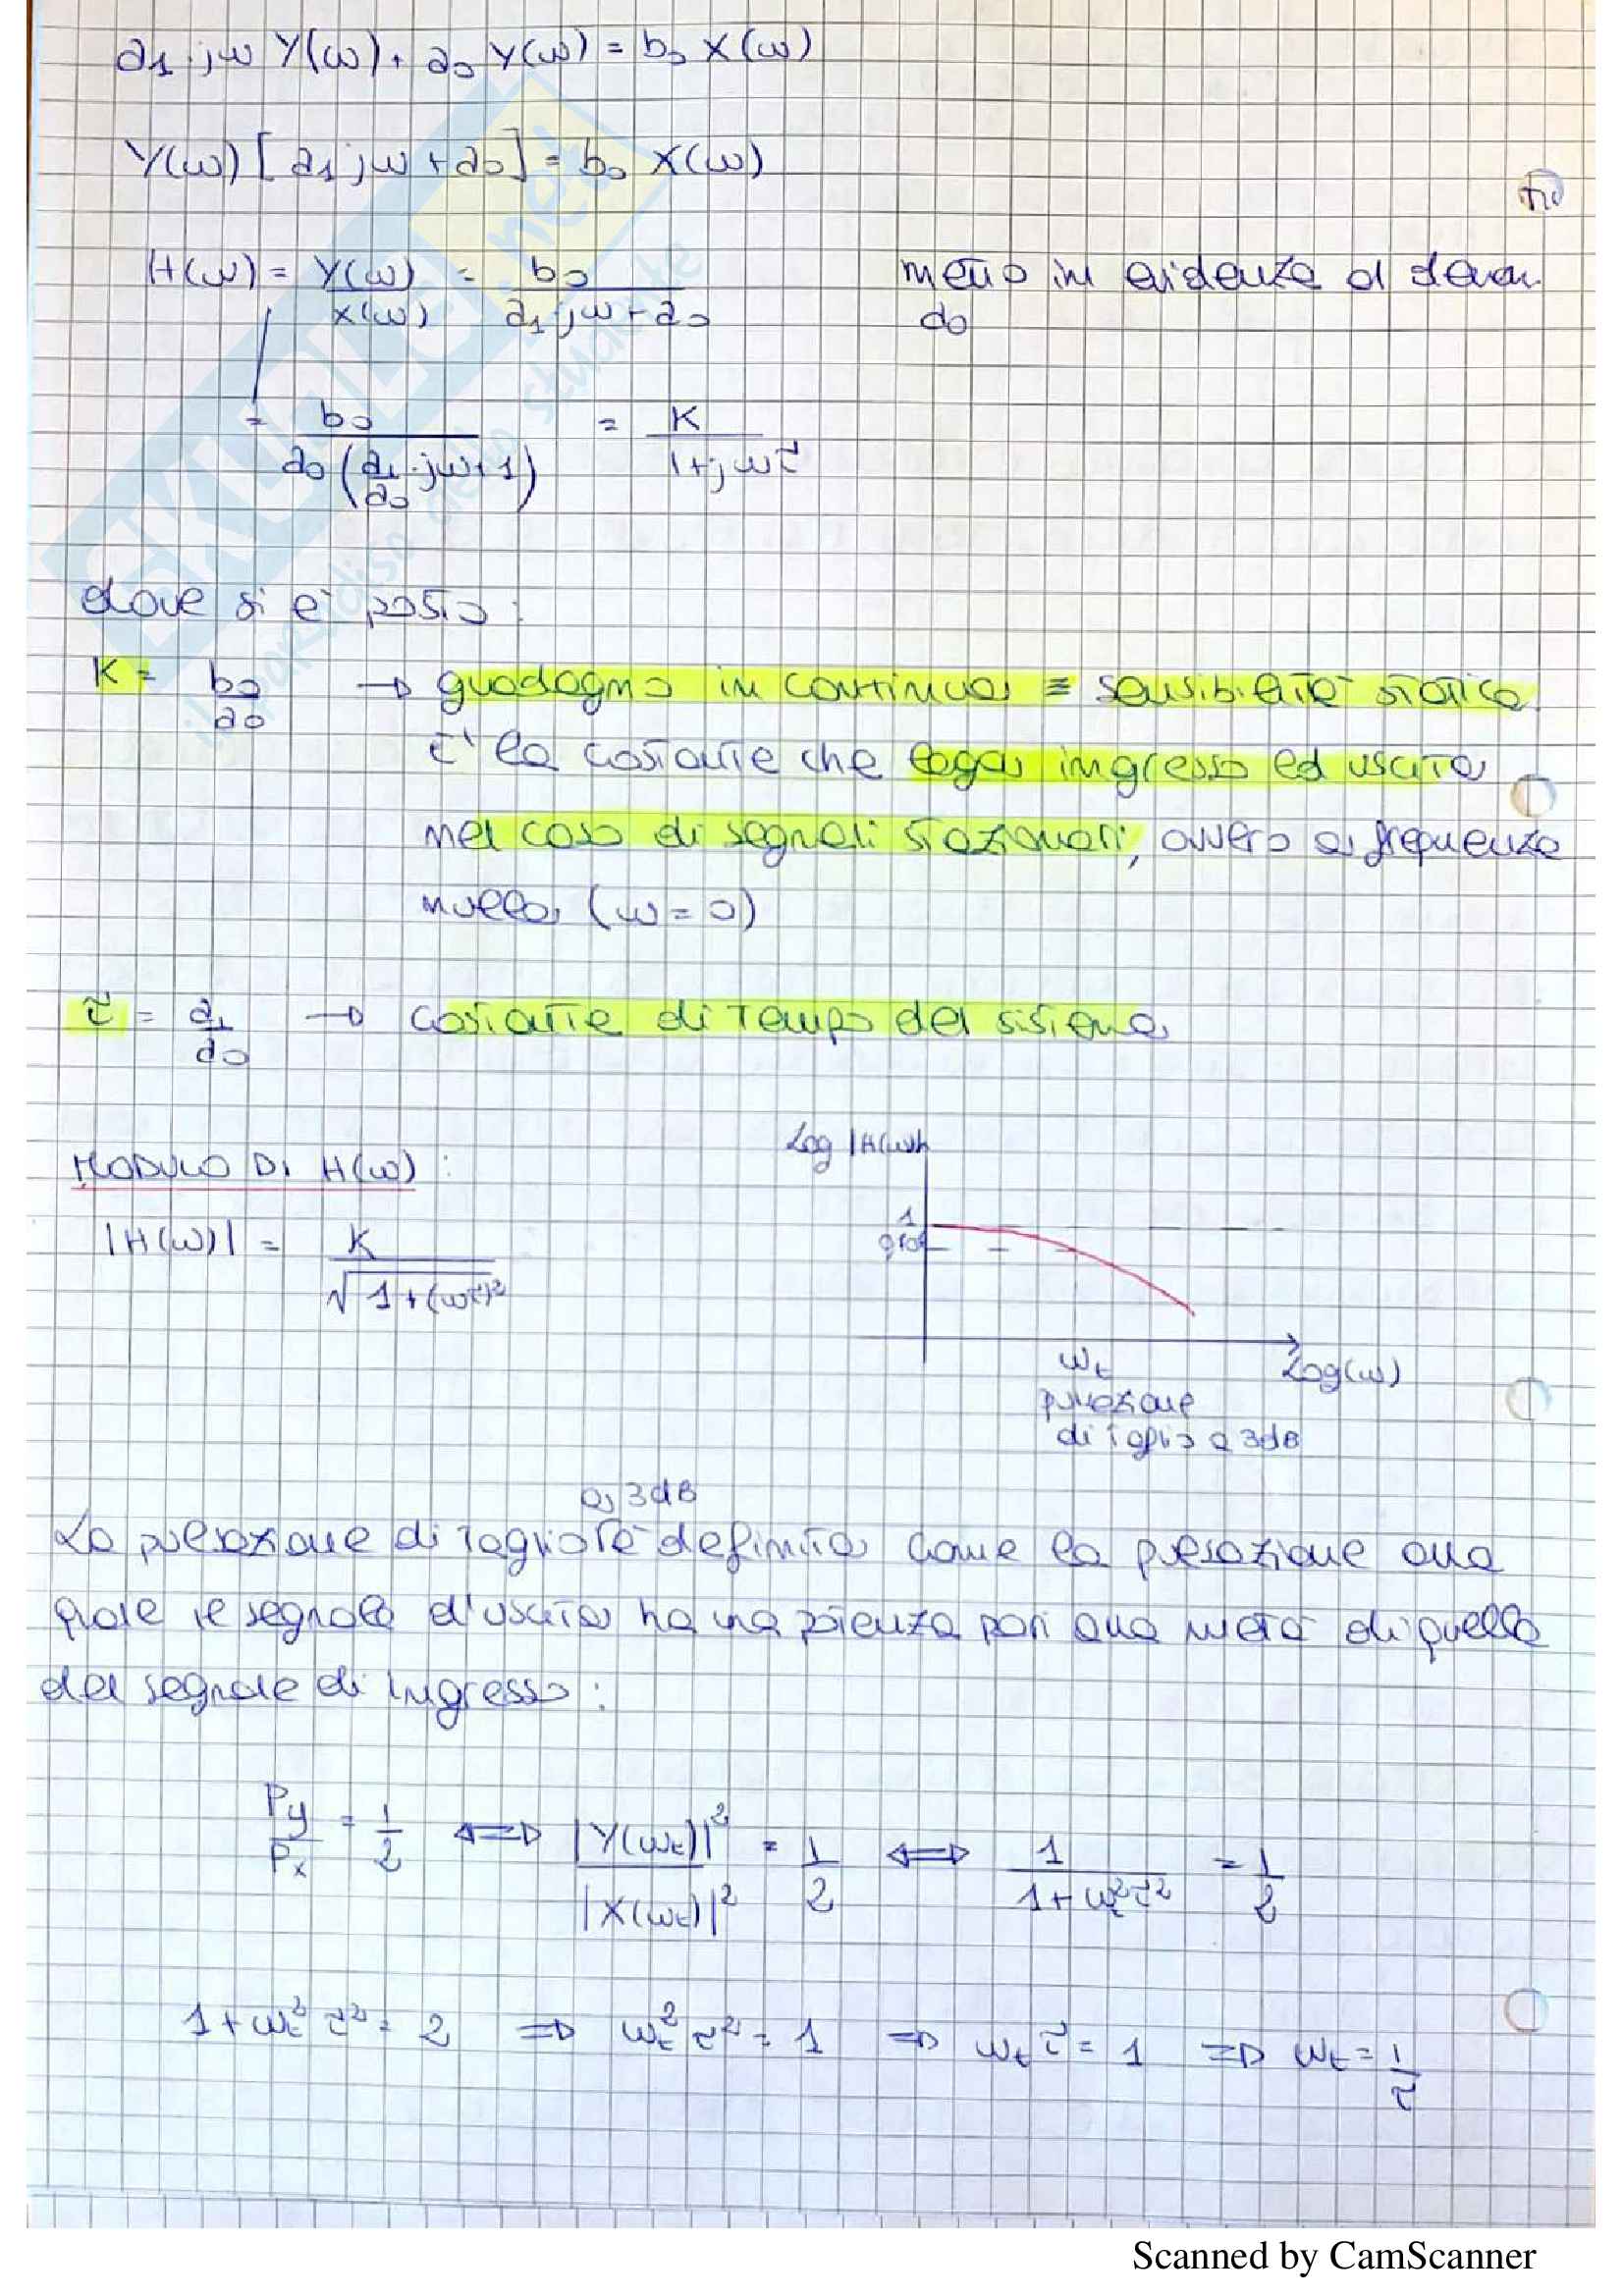 a₁·jω Y(ω) + a₀ Y(ω) = b₀ X(ω)
Y(ω) [a₁ jω + a₀] = b₀ X(ω)
H(ω) = Y(ω)/X(ω) = b₀/(a₁·jω + a₀) metto in evidenza al denom.
a₀
= b₀/(a₀(a₁/a₀·jω + 1)) = K/(1+jωτ)
dove si è posto :
K = b₀/a₀ → guadagno in continua ≡ sensibilità statica
È la costante che lega ingresso ed uscita
nel caso di segnali stazionari, ovvero a frequenza
nulla (ω = 0)
τ = a₁/a₀ → costante di tempo del sistema
MODULO DI H(ω) :
|H(ω)| = K/√(1+(ωτ)²)
Log |H(ω)|
1
ωt
Log(ω)
pulsazione
di taglio a 3dB
a 3dB
La pulsazione di taglio è definita come la pulsazione alla
quale il segnale d'uscita ha una potenza pari alla metà di quella
del segnale di ingresso :
Py/Px = 1/2 ⇔ |Y(ωt)|²/|X(ωt)|² = 1/2 ⇔ 1/(1+ωt²τ²) = 1/2
1+ωt²τ² = 2 ⇒ ωt²τ² = 1 ⇒ ωt τ = 1 ⇒ ωt = 1/τ
SKUOLA.net
il paradiso dello studente
Scanned by CamScanner